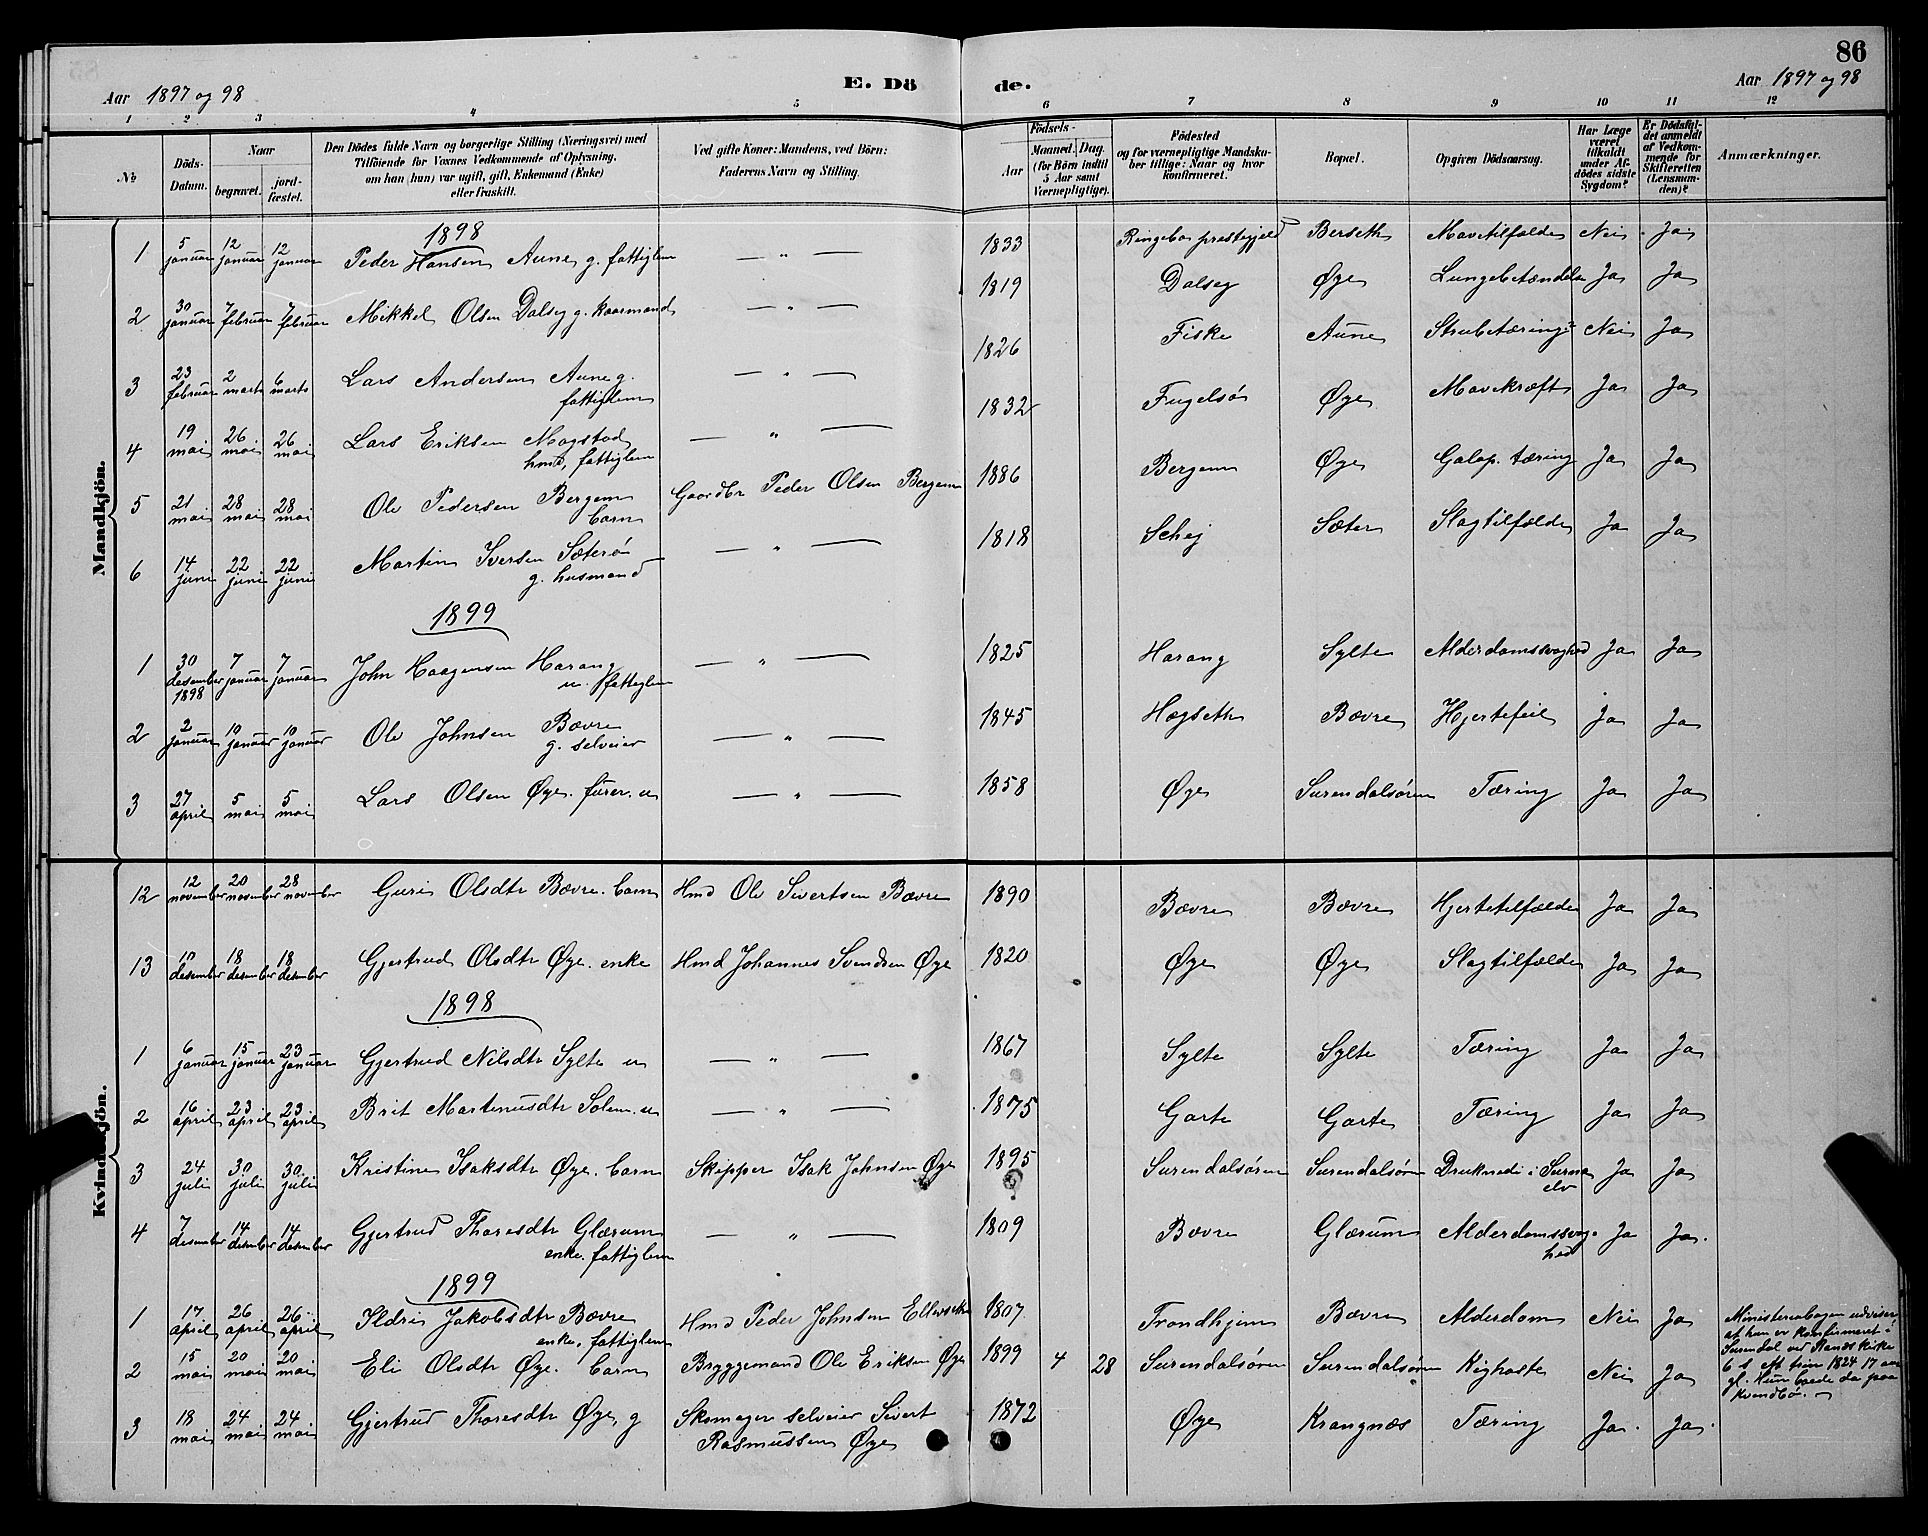 86
Aar 1897 og 98 E. Döde. Aar 1897 og 98
1 2 3 4 5 6 7 8 9 10 11 12
№ Döds-Datum. Naar begravet. jordfæstet. Den Dödes fulde Navn og borgerlige Stilling (Næringsvei) med Tilföiende for Voxnes Vedkommende af Oplysning, om han (hun) var ugift, gift, Enkemand (Enke) eller fraskilt. Ved gifte Koner: Mandens, ved Börn: Faderens Navn og Stilling. Födsels- Aar Maaned. Dag. (for Börn indtil 5 Aar samt Værnepligtige). Födested og for værnepligtige Mandskaber tillige: Naar og hvor konfirmeret. Bopæl. Opgiven Dödsaarsag. Har Læge været tilkaldt under Afdödes sidste Sygdom? Er Dödsfaldet anmeldt af Vedkommende for Skifteretten (Lensmanden)? Anmærkninger.
Mandkjön.
1898
1 5 januar 12 januar 12 januar Peder Hansen Aune g. fattiglem — " — 1833 Ringebo prestegjeld Berseth Mavetilfælde Nei Ja
2 30 januar 7 februar 7 februar Mikkel Olsen Dalseg g. kaarmand — " — 1819 Dalseg Øye Lungebetændelse Ja Ja
3 23 februar 2 marts 6 marts Lars Andersen Aune g. fattiglem — " — 1826 Fiske Aune Strubetæring Nei Ja
4 19 mai 26 mai 26 mai Lars Eriksen Mogstad hmd, fattiglem — " — 1832 Fugelsø Øye Mavekræft Ja Ja
5 21 mai 28 mai 28 mai Ole Pedersen Bergem barn Gaardbr Peder Olsen Bergem 1886 Bergem Øye Galop. tæring Ja Ja
6 14 juni 22 juni 22 juni Martin Iversen Sæterø g. husmand — " — 1818 Schej Sæter Slagtilfælde Ja Ja
1899
1 30 desember 1898 7 januar 7 januar John Haagensen Harang u. fattiglem — " — 1825 Harang Sylte Alderdomssvaghed Ja Ja
2 2 januar 10 januar 10 januar Ole Johnsen Bævre g. selveier — " — 1845 Høgseth Bævre Hjertefeil Ja Ja
3 27 april 5 mai 5 mai Lars Olsen Øye. furer. u — " — 1858 Øye Surendalsøren Tæring Ja Ja
Kvindekjön.
12 12 november 20 november 28 november Guri Olsdtr Bævre. barn Hmd Ole Sivertsen Bævre 1890 Bævre Bævre Hjertetilfælde Ja Ja
13 10 desember 18 desember 18 desember Gjertrud Olsdtr Øye. enke Hmd Johannes Svendsen Øye 1820 Øye Øye Slagtilfælde Ja Ja
1898
1 6 januar 15 januar 23 januar Gjertrud Nilsdtr Sylte u — " — 1867 Sylte Sylte Tæring Ja Ja
2 16 april 23 april 23 april Brit Martinusdtr Solem. u — " — 1875 Garte Garte Tæring Ja Ja
3 24 juli 30 juli 30 juli Kristine Isaksdtr Øye. barn Skipper Isak Johnsen Øye 1895 Surendalsøren Surendalsøren Druknede i Surna elv Ja Ja
4 7 desember 14 desember 14 desember Gjertrud Thoresdtr Glærum enke. fattiglem — " — 1809 Bævre Glærum Alderdomssvaghed Ja Ja.
1899
1 17 april 26 april 26 april Ildri Jakobsdtr Bævre enke, fattiglem Hmd Peder Johnsen Ellevseth 1807 Trondhjem Bævre Alderdom Nei Ja Ministerialbogen udviser at hun er konfirmeret i Surendal ved Ranes kirke 6 s. eft trin 1824 17 aar gl. Hun boede da paa Kvendbø.
2 15 mai 20 mai 20 mai Eli Olsdtr Øye. barn Bryggemand Ole Eriksen Øye 1899 4 28 Surendalsøren Surendalsøren Kighoste Nei Ja
3 18 mai 24 mai 24 mai Gjertrud Thoresdtr Øye, g Skomager selveier Sivert Rasmussen Øye 1872 Øye Krangnæs Tæring Ja. Ja.